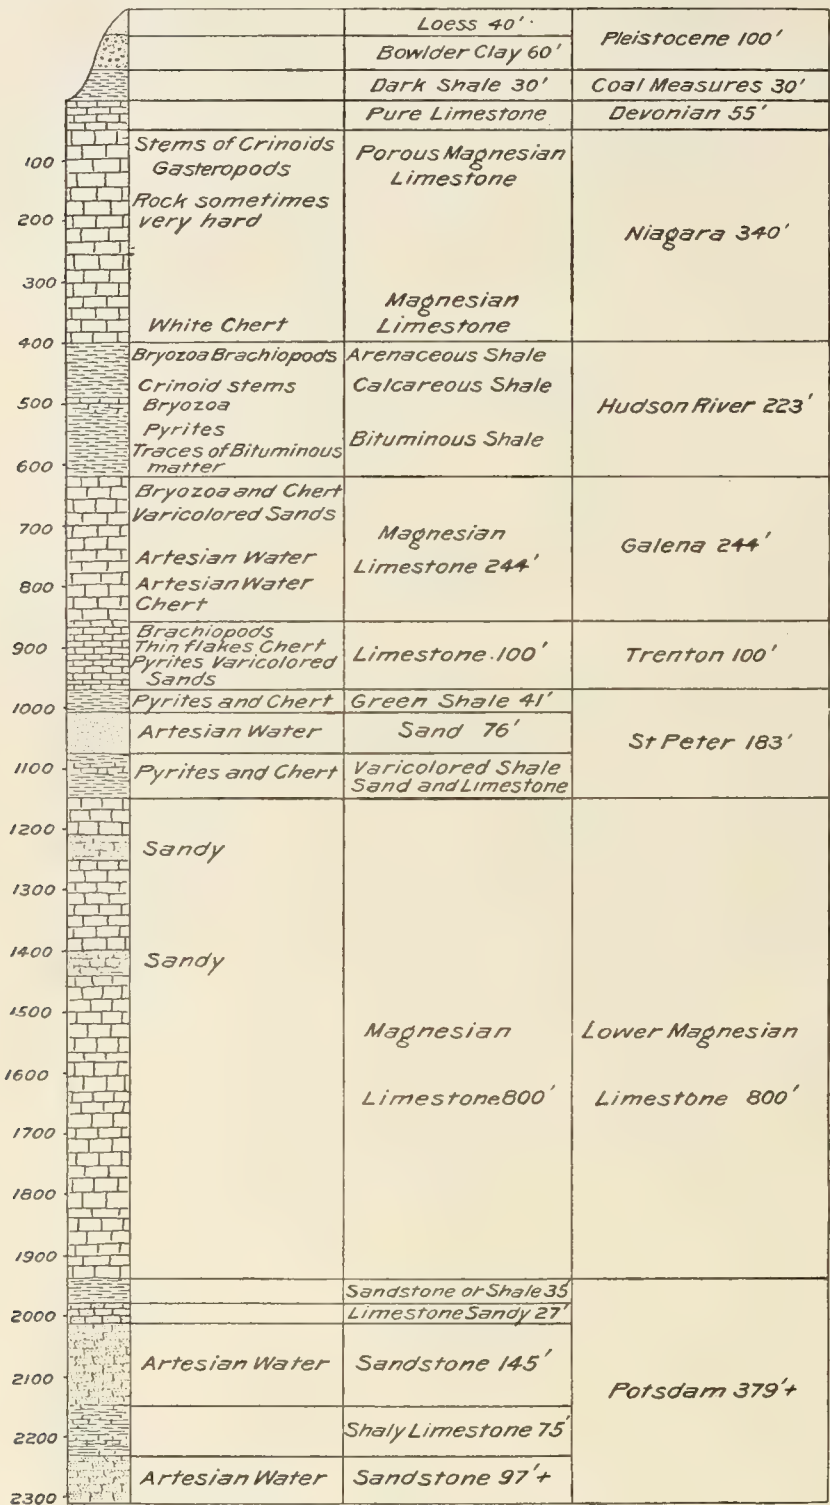 Loess 40'
Bowlder Clay 60'
Pleistocene 100'
Dark Shale 30'
Coal Measures 30'
Pure Limestone
Devonian 55'
100
200
300
400
Stems of Crinoids
Gasteropods
Rock sometimes
very hard
White Chert
Porous Magnesian
Limestone
Magnesian
Limestone
Niagara 340'
500
600
Bryozoa Brachiopods
Crinoid stems
Bryozoa
Pyrites
Traces of Bituminous
matter
Arenaceous Shale
Calcareous Shale
Bituminous Shale
Hudson River 223'
700
800
Bryozoa and Chert
Varicolored Sands
Artesian Water
Artesian Water
Chert
Magnesian
Limestone 244'
Galena 244'
900
Brachiopods
Thin flakes Chert
Pyrites Varicolored
Sands
Limestone 100'
Trenton 100'
1000
Pyrites and Chert
Green Shale 41'
Artesian Water
Sand 76'
St Peter 183'
1100
Pyrites and Chert
Varicolored Shale
Sand and Limestone
1200
1300
1400
1500
1600
1700
1800
1900
Sandy
Sandy
Magnesian
Limestone 800'
Lower Magnesian
Limestone 800'
Sandstone or Shale 35'
2000
Limestone Sandy 27'
2100
Artesian Water
Sandstone 145'
Potsdam 379'+
2200
Shaly Limestone 75'
2300
Artesian Water
Sandstone 97'+